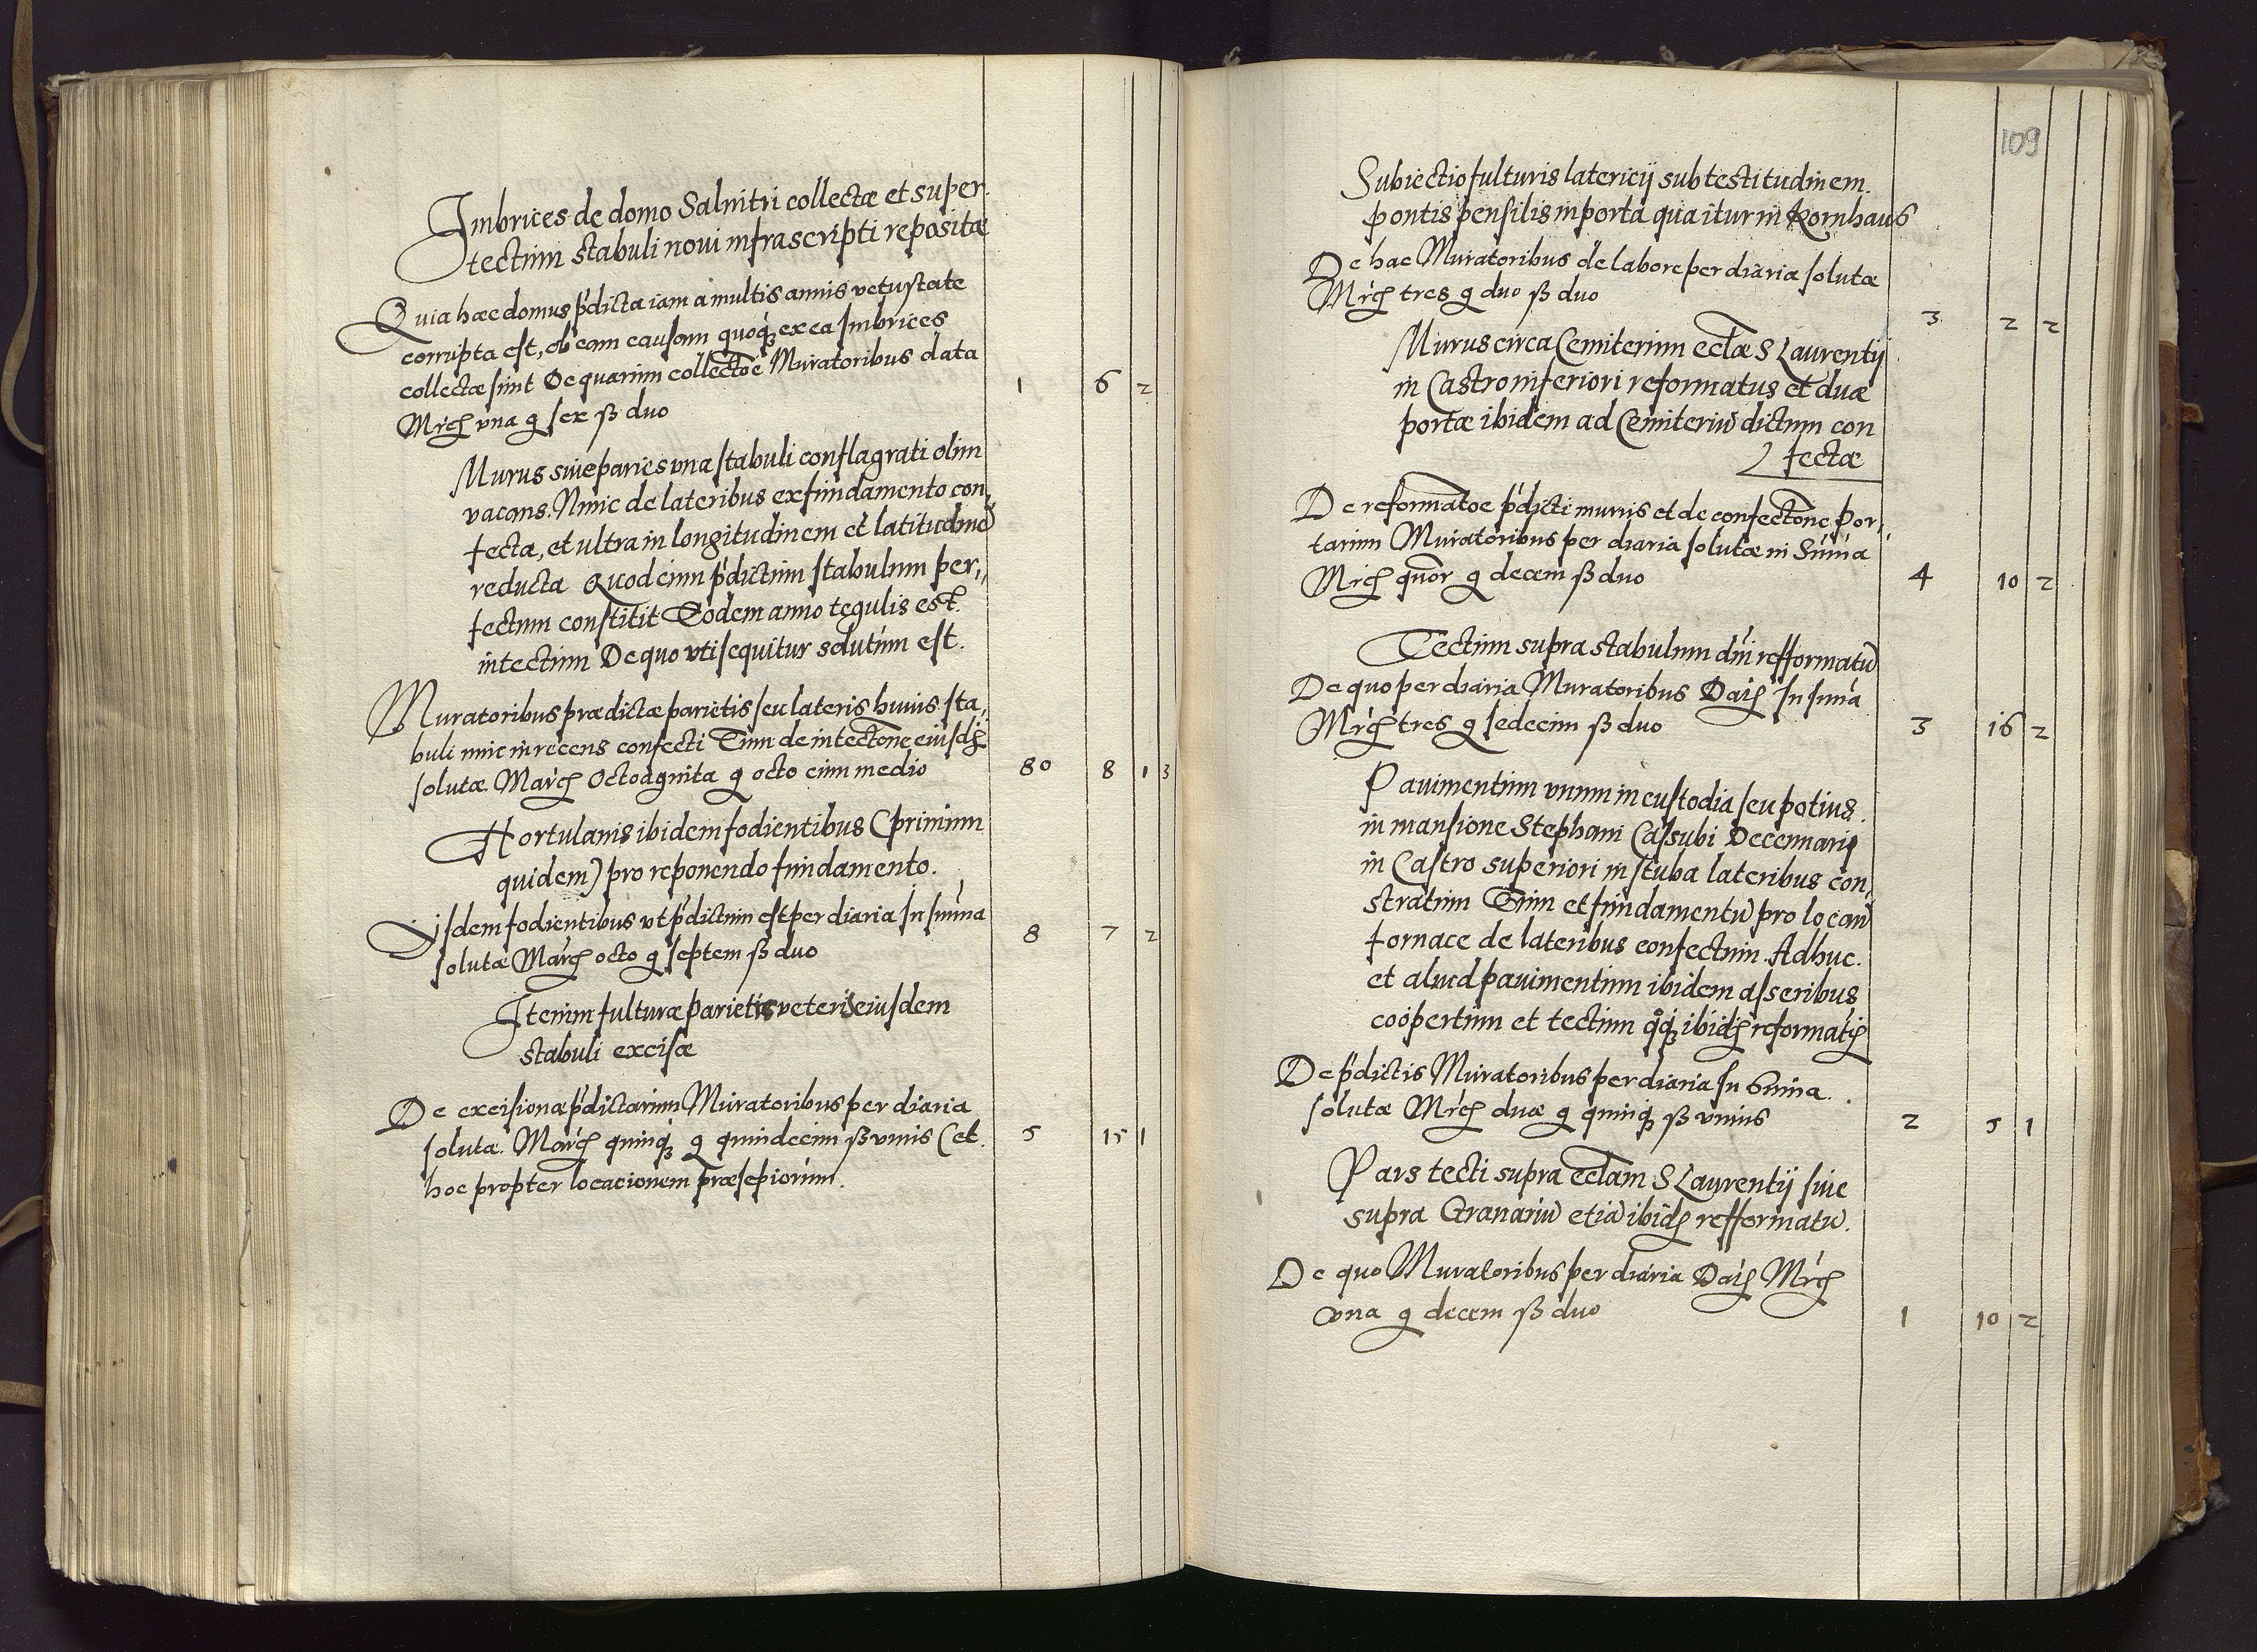 Imbrices de domo Salnitri collectæ et super
tectum stabuli noui infrascripti repositæ
Quia hæc domus p'dicta iam a multis annis vetustate
corrupta est, ob eam causam quoq; ex ea Imbrices
collectæ sunt De quarum collectõe Muratoribus data
Mrcꝭ vna g sex ß duo 1 6 2
Murus siue paries vna stabuli conflagrati olim
vacans. Nunc de lateribus ex fundamento con,,
fecta, et ultra in longitudinem et latitudinẽ
reducta Quod cum p'dictum stabulum per,,
fectum constitit Eodem anno tegulis est.
intectum De quo vti sequitur solutum est.
Muratoribus prædictæ parietis seu lateris huius sta,,
buli nunc in recens confecti Cum de intectone eiusdꝭ
solutæ. Marcꝭ Octoaginta g octo cum medio 80 8 1 3
Hortulanis ibidem fodientibus (primum
quidem) pro reponendo fundamento.
Iisdem fodientibus vt p'dictum est per diaria In sum̃a
solutæ Marcꝭ octo g septem ß duo 8 7 2
Iterum fulturæ parietis veteris eiusdem
stabuli excisæ
De excisione p'dictarum Muratoribus per diaria
solutæ. Marcꝭ quinq; g quindecim ß vnus (et 5 15 1
hoc propter locacionem præsepiorum.
109
Subiectio fulturis latericij sub testitudinem.
pontis pensilis in porta qua itur in Kornhaus
De hac Muratoribus de labore per diaria solutæ
Mrcꝭ tres g duo ß duo 3 2 2
Murus circa Cemiterium ecl̃æ S Laurentij
in Castro inferiori reformatus et duæ
portæ ibidem ad Cemiteriũ dictum con
fectæ
De reformatõe p'dicti muris et de confectone por,,
tarum Muratoribus per diaria solutæ in Sum̃a
Mrcꝭ quor g decem ß duo 4 10 2
Tectum supra stabulum dñi refformatũ
De quo per diaria Muratoribus Datꝭ In sum̃a
Mrcꝭ tres g sedecim ß duo 3 16 2
Pauimentum vnum in custodia seu potius
in mansione Stephani Cassubi Decennarij
in Castro superiori in stuba lateribus con,,
stratum Cum et fundamentũ pro locan
fornace de lateribus confectum. Adhuc.
et aliud pauimentum ibidem asseribus
coopertum et tectum qq; ibidꝭ reformatꝭ
De p'dictis Muratoribus per diaria In Sum̃a.
solutæ Mrcꝭ duæ g quinq; ß vnus 2 5 1
Pars tecti supra ecl̃am S Laurentij siue
supra Granariũ etiã ibidꝭ refformatũ.
De quo Muratoribus per diaria Datꝭ Mrcꝭ
vna g decem ß duo 1 10 2